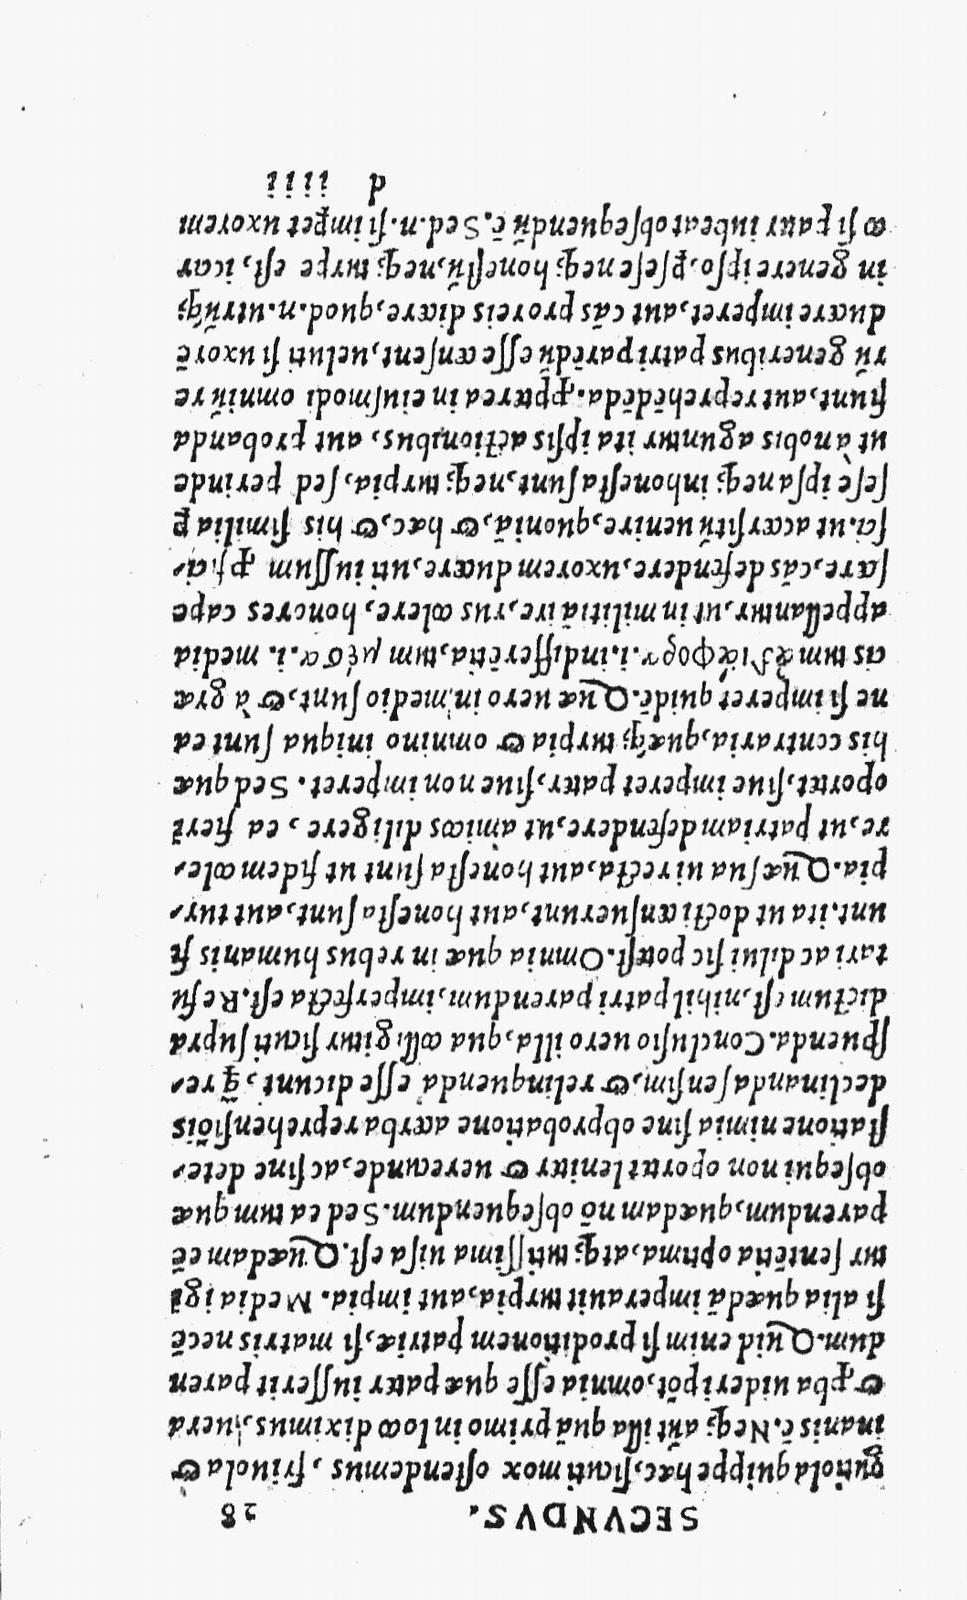 SECVNDVS. 28
gutiola quippe hæc, sicuti mox ostendemus, friuola &
inanis ē. Neq; aūt illa quā primo in loco diximus, uera
& ꝓba uideri pōt, omnia esse quæ pater iusserit paren
dum. Quid enim si proditionem patriæ, si matris necē
si alia quædā imperauit turpia, aut impia. Media igi
tur sentētia optima, atq; tutissima uisa est. Quædam eē
parendum, quædam nō obsequendum. Sed ea tum quæ
obsequi non oportet leniter & uerecunde, ac sine dete-
statione nimia sine obprobatione acerba reprehensiōis
declinanda sensim, & relinquenda esse dicunt, q̄ res-
spuenda. Conclusio uero illa, qua colligitur sicuti supra
dictum est, nihil patri parendum, imperfecta est. Refu
tari ac dilui sic potest. Omnia quæ in rebus humanis fi
unt, ita ut docti censuerunt, aut honesta sunt, aut tur-
pia. Quæ sua ui recta, aut honesta sunt ut fidem cole-
re, ut patriam defendere, ut amicos diligere, ea fieri
oportet, siue imperet pater, siue non imperet. Sed quæ
his contraria, quæq; turpia & omnino iniqua sunt ea
ne si imperet quidē. Quæ uero in medio sunt, & à græ
cis tum ἀδιάφορα .i. indifferētia, tum μέσα .i. media
appellantur, ut in militiā ire, rus colere, honores cape
sare, cās defendere, uxorem ducere, uti iussum ꝓficis-
sci. ut accersitū uenire, quoniā, & hæc, & his similia ꝑ
sese ipsa neq; inhonesta sunt, neq; turpia, sed perinde
ut à nobis aguntur ita ipsis actionibus, aut ꝓbanda
fiunt, aut reprehēdēda. ꝓpterea in eiusmodi omniū re
rū generibus patri parēdū esse censent, ueluti si uxorē
ducere imperet, aut cās pro reis dicere, quod .n. utrūq;
in genere ipso, ꝑ sese neq; honestū, neq; turpe est, icar
co si pater iubeat obsequendū ē. Sed .n. si imꝑet uxorem
d iiii